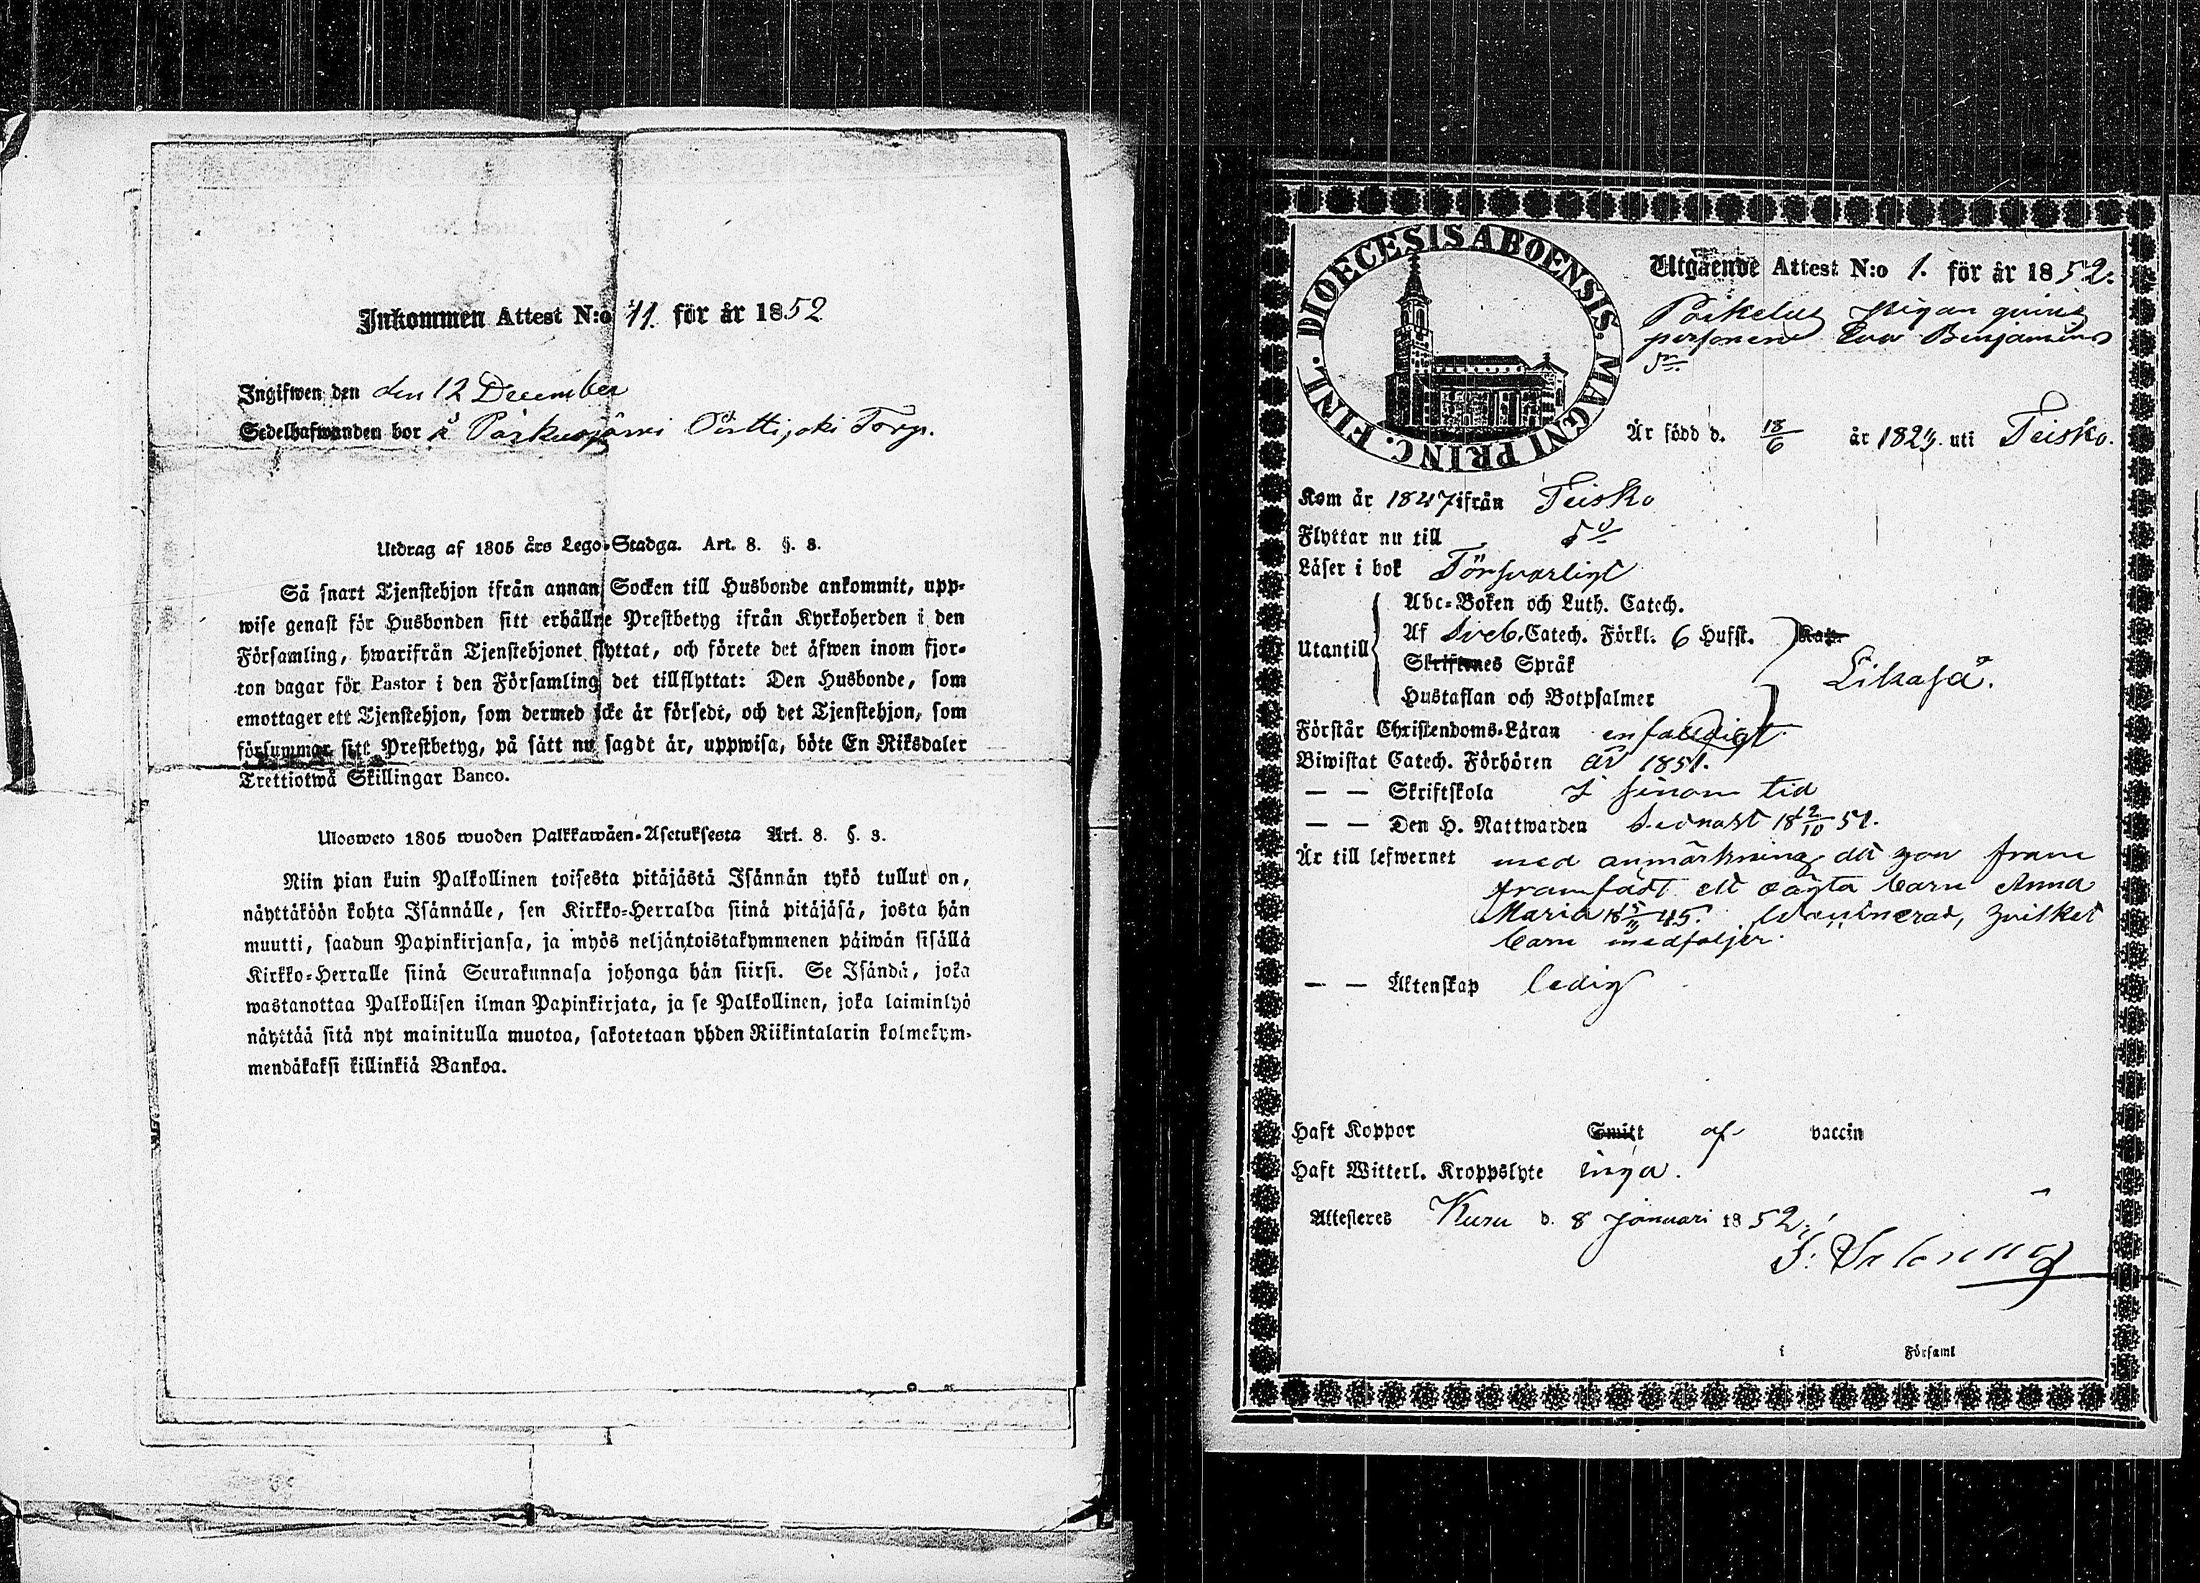 Inkommen Attest N:o 41. för år 1852
Ingifwen den den 12 December
Sedelhafwanden bor å Paskusjärvi Torp.
Utdrag af 1805 års Lego-Stadga. Art. 8. §. 3.
Så snart Tjenstehjon ifrån annan Socken till Husbonde ankommit, upp-
wise genast för Husbonden sitt erhållne Prestbetyg ifrån Kyrkoherden i den
Församling, hwarifrån Tjenstehjonet flyttat, och förete det äfwen inom fjor-
ton dagar för Pastor i den Församling det tillflyttat: Den Husbonde, som
emottager ett Tjenstehjon, som dermed icke är försedt, och det Tjenstehjon, som
försummar sitt Prestbetyg, på sätt nu sagdt är, uppwisa, böte En Riksdaler
Trettiotwå Skillingar Banco.
Ulosweto 1805 wuoden Palkkawäen-Asetuksesta Art. 8. §. 3.
Niin pian kuin Palkollinen toisesta pitäjästä Isännän tykö tullut on,
näyttäköön kohta Isännälle, sen Kirkko-Herralda siinä pitäjäsä, josta hän
muutti, saadun Papinkirjansa, ja myös neljäntoistakymmenen päiwän sisällä
Kirkko-Herralle siinä Seurakunnasa johonga hän siirsi. Se Isändä, joka
wastanottaa Palkollisen ilman Papinkirjata, ja se Palkollinen, joka laiminlyö
näyttää sitä nyt mainitulla muotoa, sakotetaan yhden Riikintalarin kolmekym-
mendäkaksi killinkiä Bankoa.
DIOECESIS ABOENSIS. MAGNI PRINC. FINL.
Utgående Attest N:o 1. för år 1852.
Pigan qvins
personen Eva Benjamins
dr
Är född d. 18/6 år 1823. uti Teisko.
Kom år 1847 ifrån Teisko
Flyttar nu till do
Läser i bok Försvarligt
Utantill
Abc-Boken och Luth. Catech.
Af Sveb. Catech. Förkl. 6 Hufst. Kap.
Skriftenes Språk
Likaså.
Hustaflan och Botpsalmer
Förstår Christendoms-Läran enfaldigt
Biwistat Catech. Förhören år 1851.
— — Skriftskola i sinom tid
— — Den H. Nattwarden senast 18 12/10 51.
Är till lefwernet med anmärkning att hon
framfödt ett oägta barn Anna
Maria 45. Vaccinerad, hvilket
barn medföljer.
— — Äktenskap ledig
Haft Koppor Smitt af vaccin
Haft Witterl. Kroppslyte inga.
Attesteres Kuru d. 8 Januari 1852.
i Församl